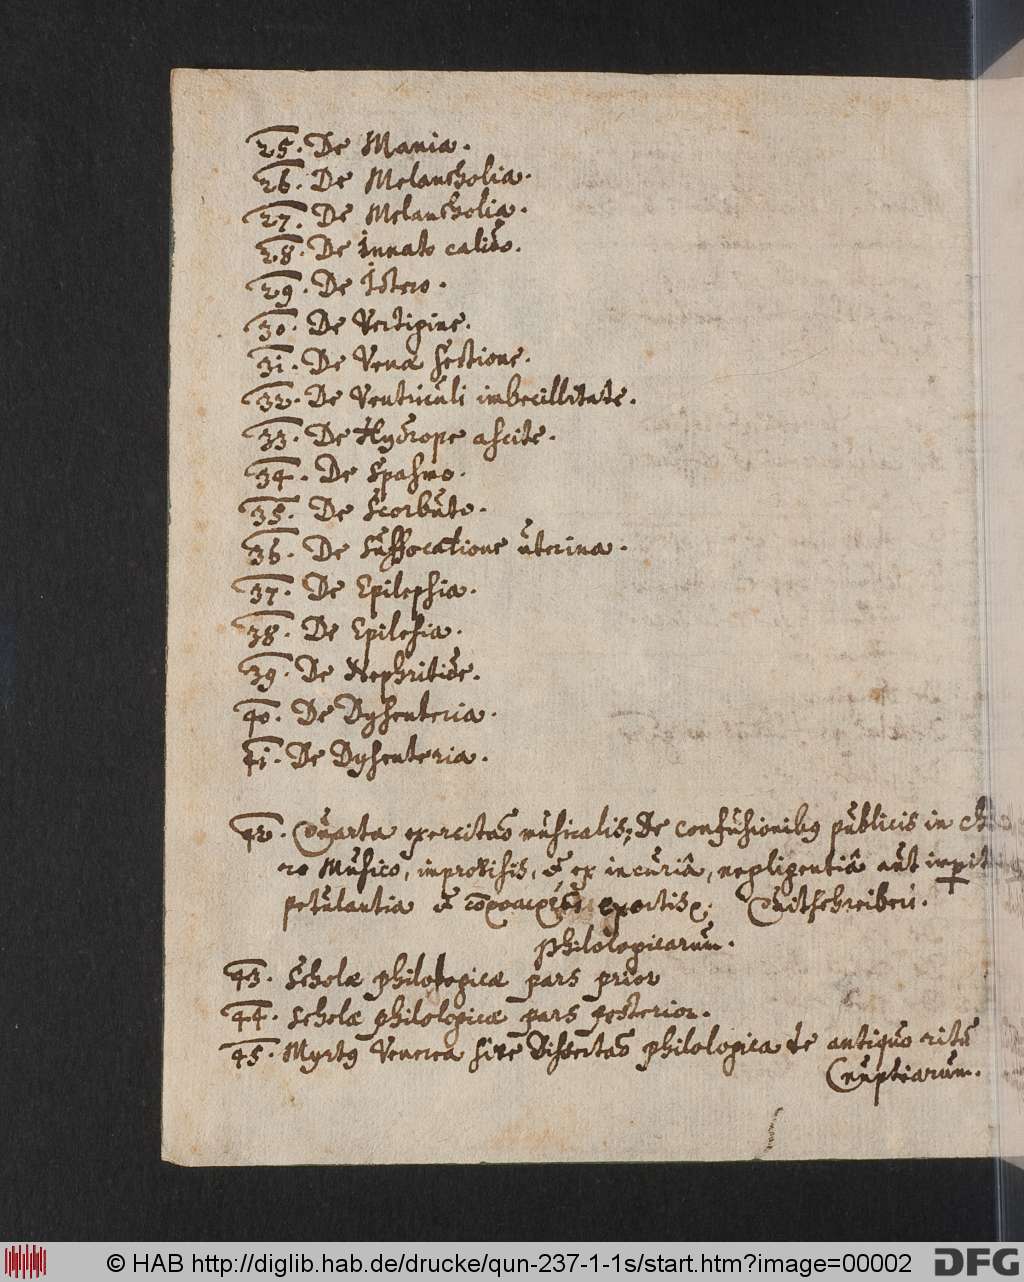 25. De Mania.
26. De Melancholia.
27. De Melancholia.
28. De Innato calido.
29. De Ictero.
30. De Vertigine.
31. De Vena sectione.
32. De Ventriculi imbecillitate.
33. De Hydrope ascite.
34. De Spasmo.
35. De Scorbuto.
36. De Suffocatione uterina.
37. De Epilepsia.
38. De Epilesia.
39. De Nephritide.
40. De Dysenteria.
41. De Dysenteria.
42. Quarta exercitaõ musicalis; De confusionibus publicis in
ro Musico, improvisis, & ex incuriâ, negligentiâ aut
petulantia & exortis. Quitschreiberi.
Philologicarum.
43. Scholæ philologicæ pars prior
44. Scholæ philologicæ pars posterior.
45. Myrtus Venerea sive Dissertaõ philologica de antiquo ritu
nuptiarum.
© HAB http://diglib.hab.de/drucke/qun-237-1-1s/start.htm?image=00002
DFG